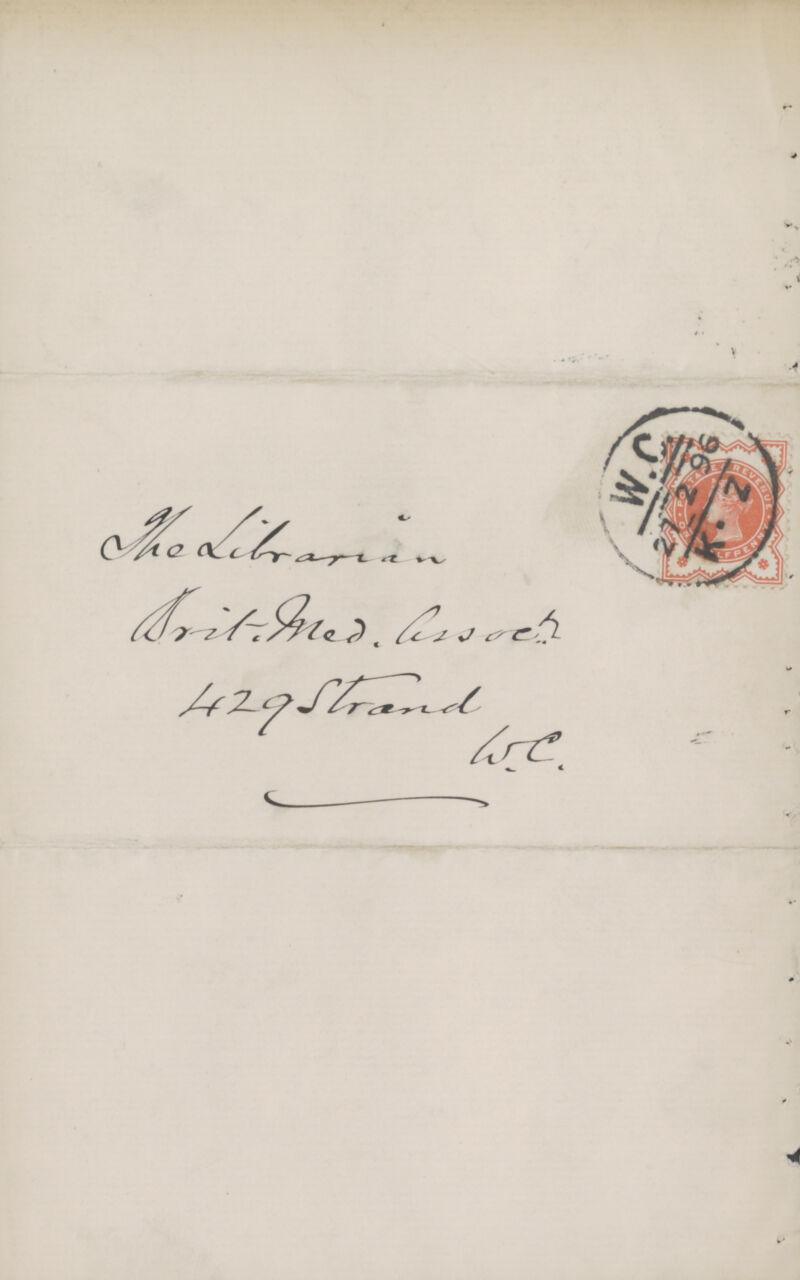 The Librarian
Brit. Med. Assocn.
429 Strand
W.C.
W.C
27 2 96
K. Z
POSTAGE & REVENUE
HALFPENNY